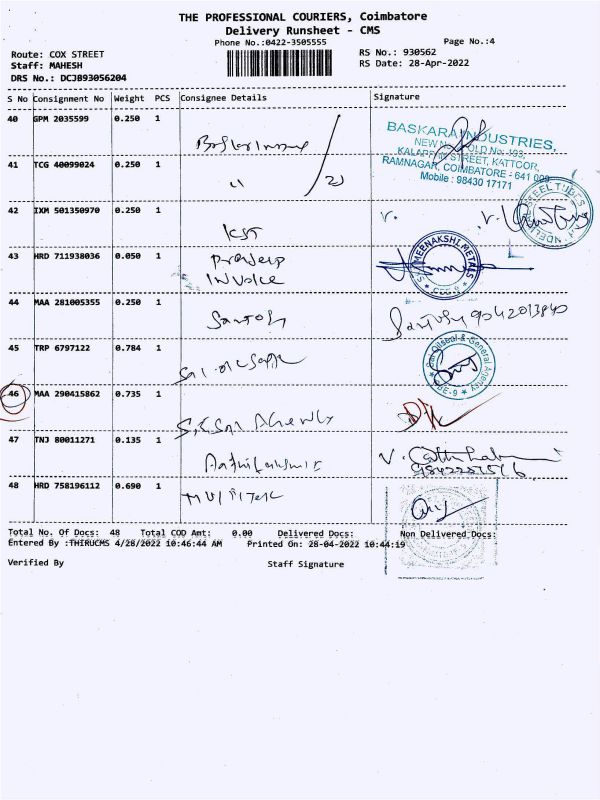 THE PROFESSIONAL COURIERS, Coimbatore
Delivery Runsheet - CMS
Phone No.:0422-3505555 Page No.:4
Route: COX STREET RS No.: 930562
Staff: MAHESH RS Date: 28-Apr-2022
DRS No.: DCJB93056204
S No Consignment No Weight PCS Consignee Details Signature
40 GPM 2035599 0.250 1
BASKARA INDUSTRIES,
KALAPPAN STREET, KATTOOR,
RAMNAGAR, COIMBATORE - 641 009
Mobile : 98430 17171
41 TCG 40099024 0.250 1
42 IXM 501350970 0.250 1 V. V.
STEEL TUBES
43 HRD 711938036 0.050 1
Invoice
MEENAKSHI METALS
44 MAA 281005355 0.250 1
Santosh Santosh 9042013840
45 TRP 6797122 0.784 1
Sai Oilseal & General Agency
46 MAA 290415862 0.735 1
47 TNJ 80011271 0.135 1
48 HRD 758196112 0.690 1
Total No. Of Docs: 48 Total COD Amt: 0.00 Delivered Docs: Non Delivered Docs:
Entered By :THIRUCMS 4/28/2022 10:46:44 AM Printed On: 28-04-2022 10:44:19
Verified By Staff Signature